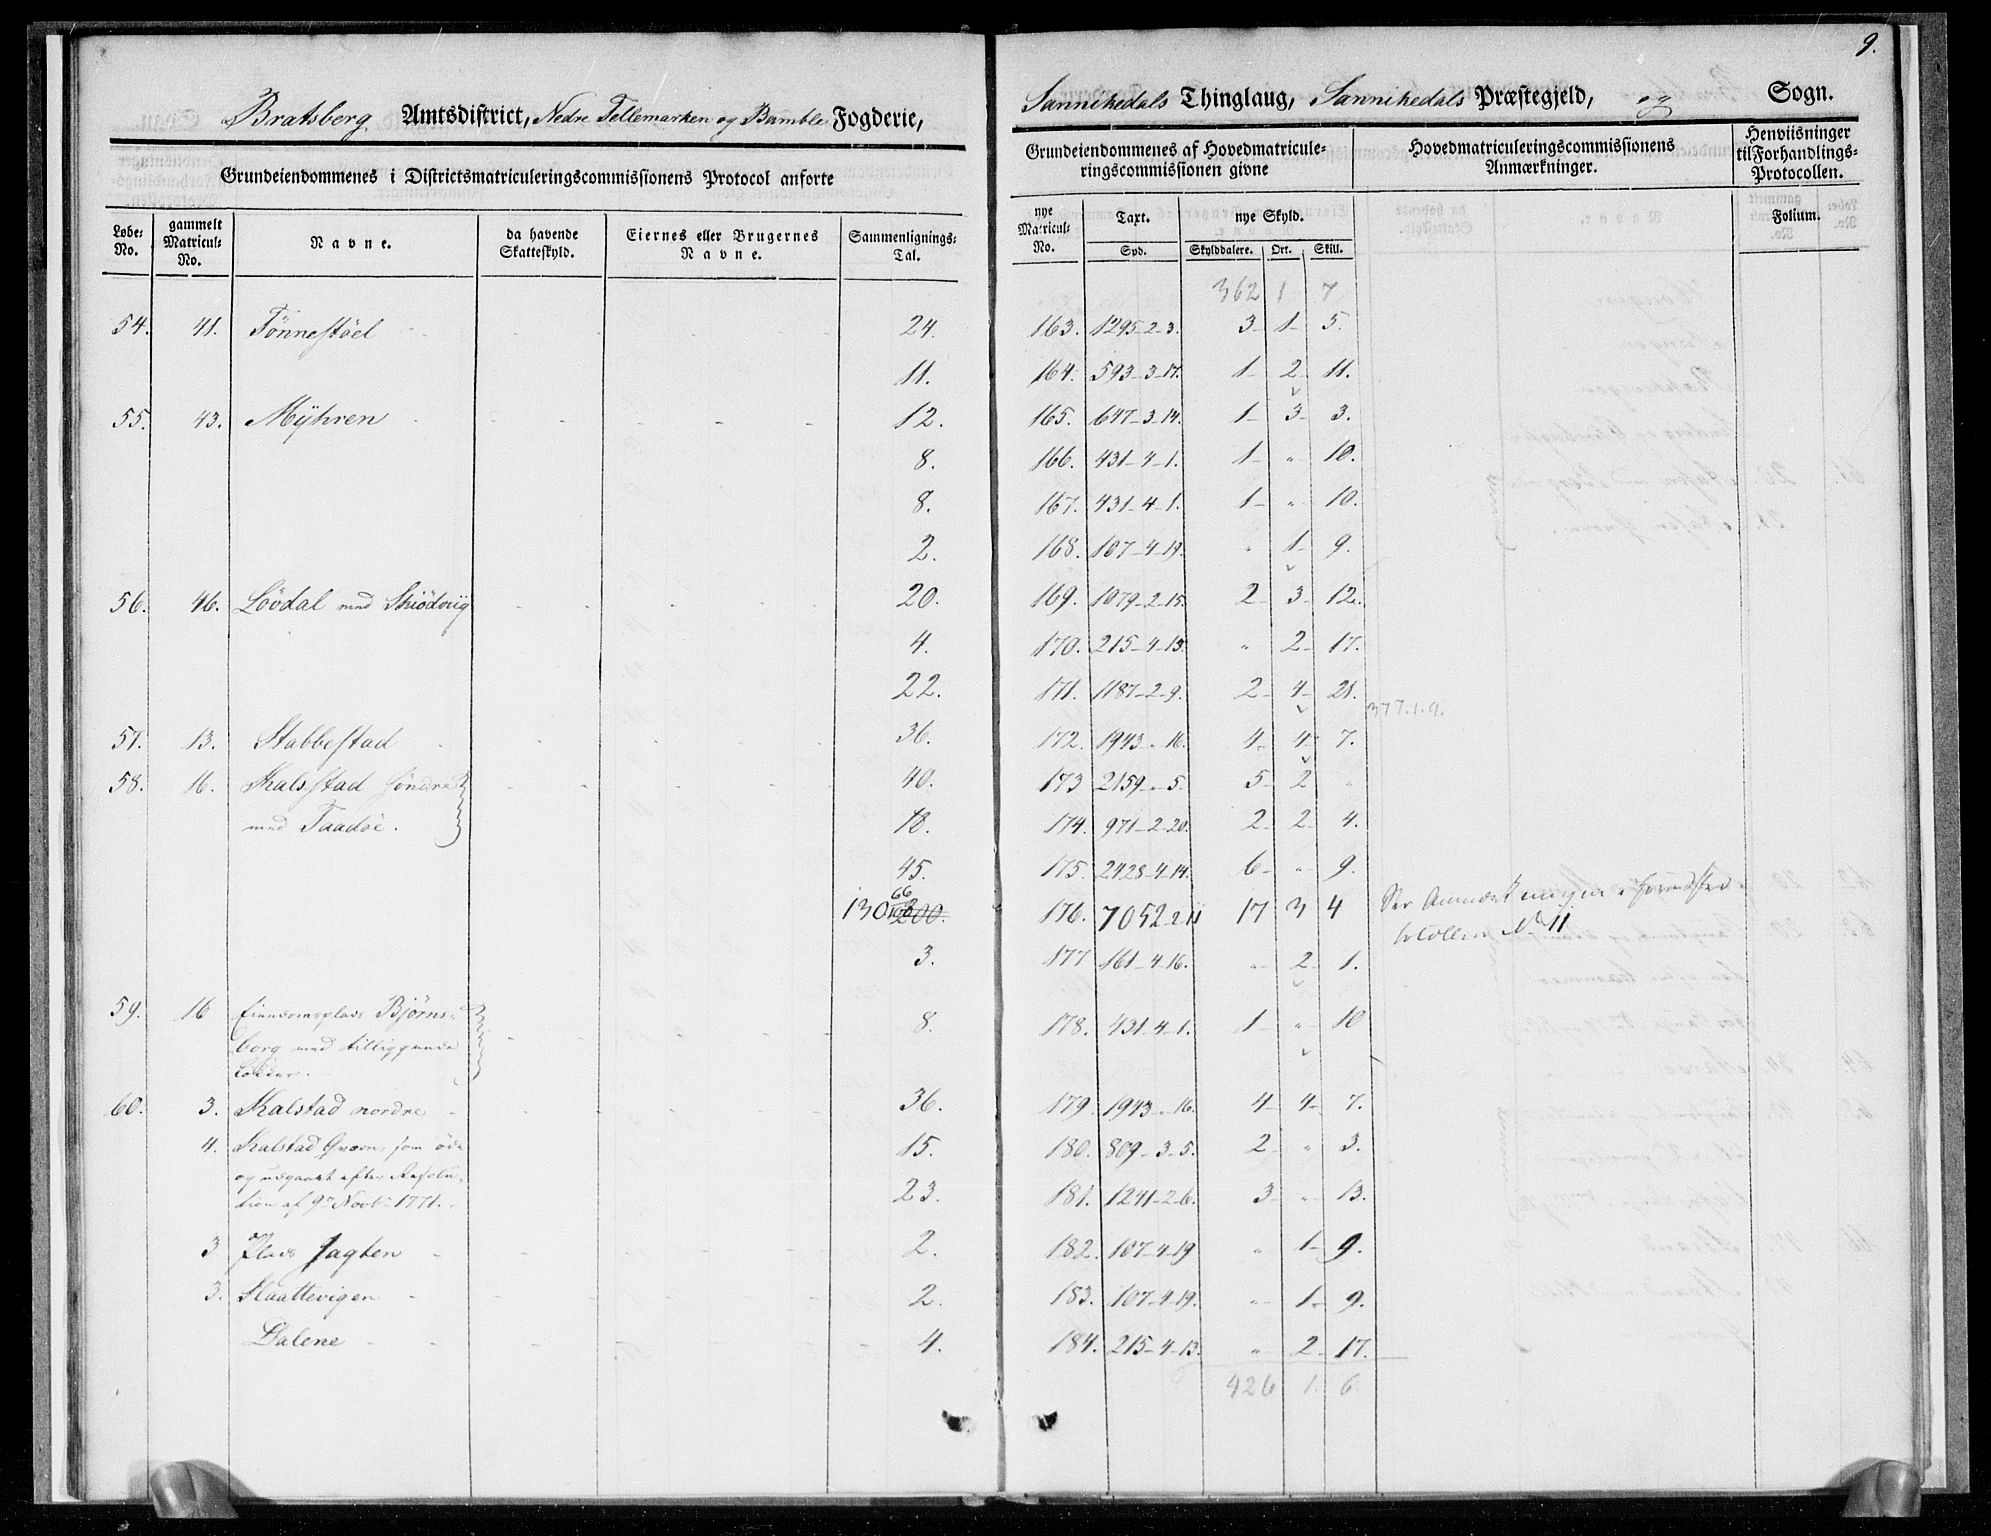 9.
Bratsberg Amtsdistrict, Nedre Tellemarken og Bamble Fogderie,
Sannikedals Thinglaug, Sannikedals Præstegjeld, og Sogn.
Grundeiendommenes i Districtsmatriculeringscommissionens Protocol anforte
Grundeiendommenes af Hovedmatricule-
ringscommissionen givne
Hovedmatriculeringscommissionens
Anmærkninger.
Henviisninger
til Forhandlings-
Protocollen.
Løbe-
No.
gammelt
Matricul-
No.
Navne.
da havende
Skatteskyld.
Eiernes eller Brugernes
Navne.
Sammenlignings-
Tal.
nye
Matricul-
No.
Taxt.
Spd.
nye Skyld.
Skylddalere. Ort. Skill.
Folium.
362 1 7
54. 41. Tönnestöel 24. 163. 1295-2-3. 3- 1- 5.
11. 164. 593-3-17. 1- 2- 11.
55. 43. Mÿhren - - - - 12. 165. 647-3-14. 1- 3- 3.
8. 166. 431-4-1. 1- " 10.
8. 167. 431-4-1. 1- " 10.
2. 168. 107-4-19. " 1- 9.
56. 46. Lövdal med Skiödvig - - - - 20. 169. 1079-2-15. 2- 3- 12.
4. 170. 215-4-13. " 2- 17.
22. 171. 1187-2-9. 2- 4- 21.
377.1.9.
57. 13. Stabbestad - - - - 36. 172. 1943-"-16. 4- 4- 7.
58. 16. Kalsstad söndre - - - - 40. 173 2159-"-5. 5- 2 "
med Taadöe. 18. 174. 971-2-20. 2- 2- 4.
45. 175. 2428-4-14. 6- " 9.
130 66/100 200. 176. 7052-2-11 17 3 4 See Anmærkningen i
No 11
3. 177 161-4-16. " 2- 1.
59. 16 Bjørns-
borg med tilliggende - - - - 8. 178. 431-4-1. 1- " 10
60. 3. Kalstad nordre - - - - 36. 179. 1943-"-16. 4- 4- 7.
4. Kalstad Qværn, som öde 15. 180. 809-3-5. 2- " 3.
og udgaaet efter Resolu-
tion af 9de Novbr 1771. 23. 181. 1241-2-6. 3- " 13.
3 Plads Jagten - - - - 2. 182. 107-4-19 " 1- 9.
3. Slaattevigen - - - - 2. 183. 107-4-19. " 1- 9.
Dalene - - - - 4. 184. 215-4-13. " 2- 17.
426 1. 6.